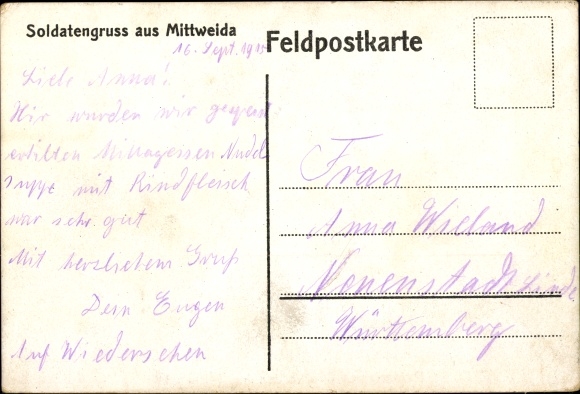 Soldatengruss aus Mittweida
Feldpostkarte
16. Sept. 191
Liebe Anna!
Hir wurden wir gespeist
erhilten Mittagessen Nudel
suppe mit Rindfleisch
war sehr gut
Mit herzlichem Gruß
Dein Eugen
Auf Wiedersehen
Frau
Anna Wieland
Neuenstadt
Württemberg